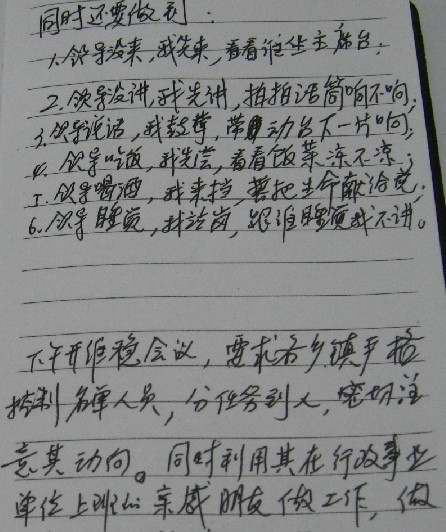 同时还要做到：
1.领导没来，我先来，看看谁坐主席台；
2.领导没讲，我先讲，拍拍话筒响不响；
3.领导说话，我鼓掌，带动台下一片响；
4.领导吃饭，我先尝，看看饭菜凉不凉；
5.领导喝酒，我来挡，誓把生命献给党；
6.领导睡觉，我站岗，跟谁睡觉我不讲。
下午开维稳会议，要求各乡镇严格
控制名单人员，分任务到人，密切注
意其动向。同时利用其在行政事业
单位上班的亲戚朋友做工作，做